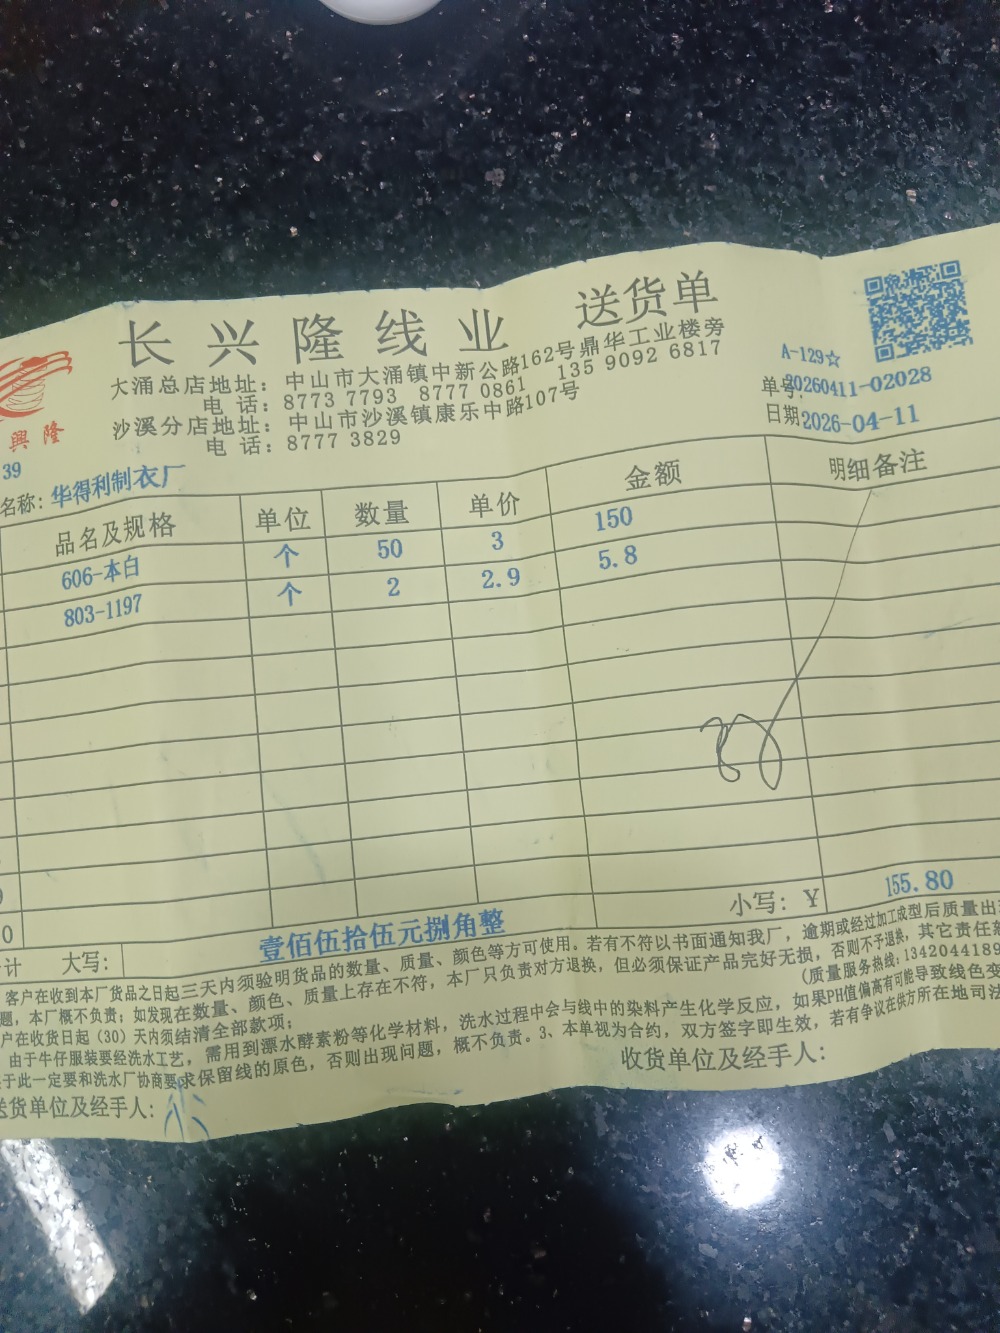 长兴隆线业 送货单
興隆
大涌总店地址：中山市大涌镇中新公路162号鼎华工业楼旁
电 话：8773 7793 8777 0861 135 9092 6817
沙溪分店地址：中山市沙溪镇康乐中路107号
电 话：8777 3829
A-129☆
单号:20260411-02028
日期2026-04-11
39
名称: 华得利制衣厂
品名及规格 单位 数量 单价 金额 明细备注
606-本白 个 50 3 150
803-1197 个 2 2.9 5.8
0
计 大写： 壹佰伍拾伍元捌角整 小写：￥ 155.80
客户在收到本厂货品之日起三天内须验明货品的数量、质量、颜色等方可使用。若有不符以书面通知我厂，逾期或经过加工成型后质量出
题，本厂概不负责；如发现在数量、颜色、质量上存在不符，本厂只负责对方退换，但必须保证产品完好无损，否则不予退换，其它责任
户在收货日起（30）天内须结清全部款项； (质量服务热线：134204418
由于牛仔服装要经洗水工艺，需用到漂水酵素粉等化学材料，洗水过程中会与线中的染料产生化学反应，如果PH值偏高有可能导致线色变
于此一定要和洗水厂协商要求保留线的原色，否则出现问题，概不负责。3、本单视为合约，双方签字即生效，若有争议在供方所在地司法
送货单位及经手人： 收货单位及经手人：